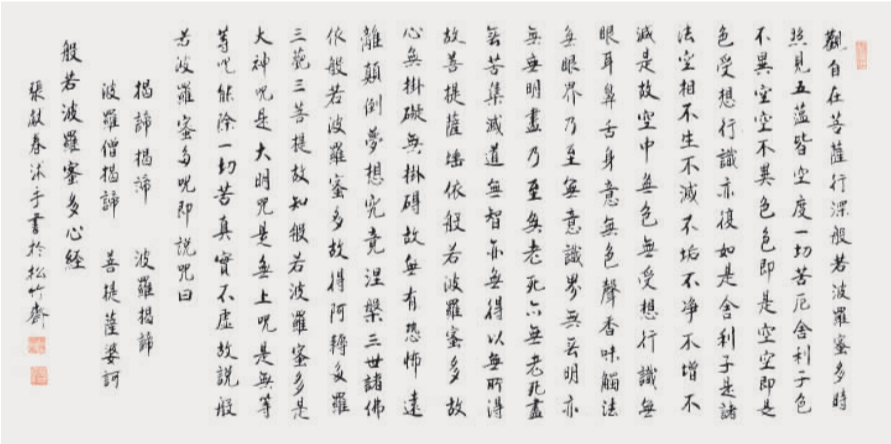 觀自在菩薩行深般若波羅蜜多時
照見五蘊皆空度一切苦厄舍利子色
不異空空不異色色即是空空即是
色受想行識亦復如是舍利子是諸
法空相不生不滅不垢不淨不增不
減是故空中無色無受想行識無
眼耳鼻舌身意無色聲香味觸法
無眼界乃至無意識界無無明亦
無無明盡乃至無老死亦無老死盡
無苦集滅道無智亦無得以無所得
故菩提薩埵依般若波羅蜜多故
心無掛礙無掛碍故無有恐怖遠
離顛倒夢想究竟涅槃三世諸佛
依般若波羅蜜多故得阿耨多羅
三藐三菩提故知般若波羅蜜多是
大神咒是大明咒是無上咒是無等
等咒能除一切苦真實不虛故說般
若波羅蜜多咒即說咒曰
揭諦揭諦 波羅揭諦
波羅僧揭諦 菩提薩婆訶
般若波羅蜜多心経
張啟春沐手書於松竹齋